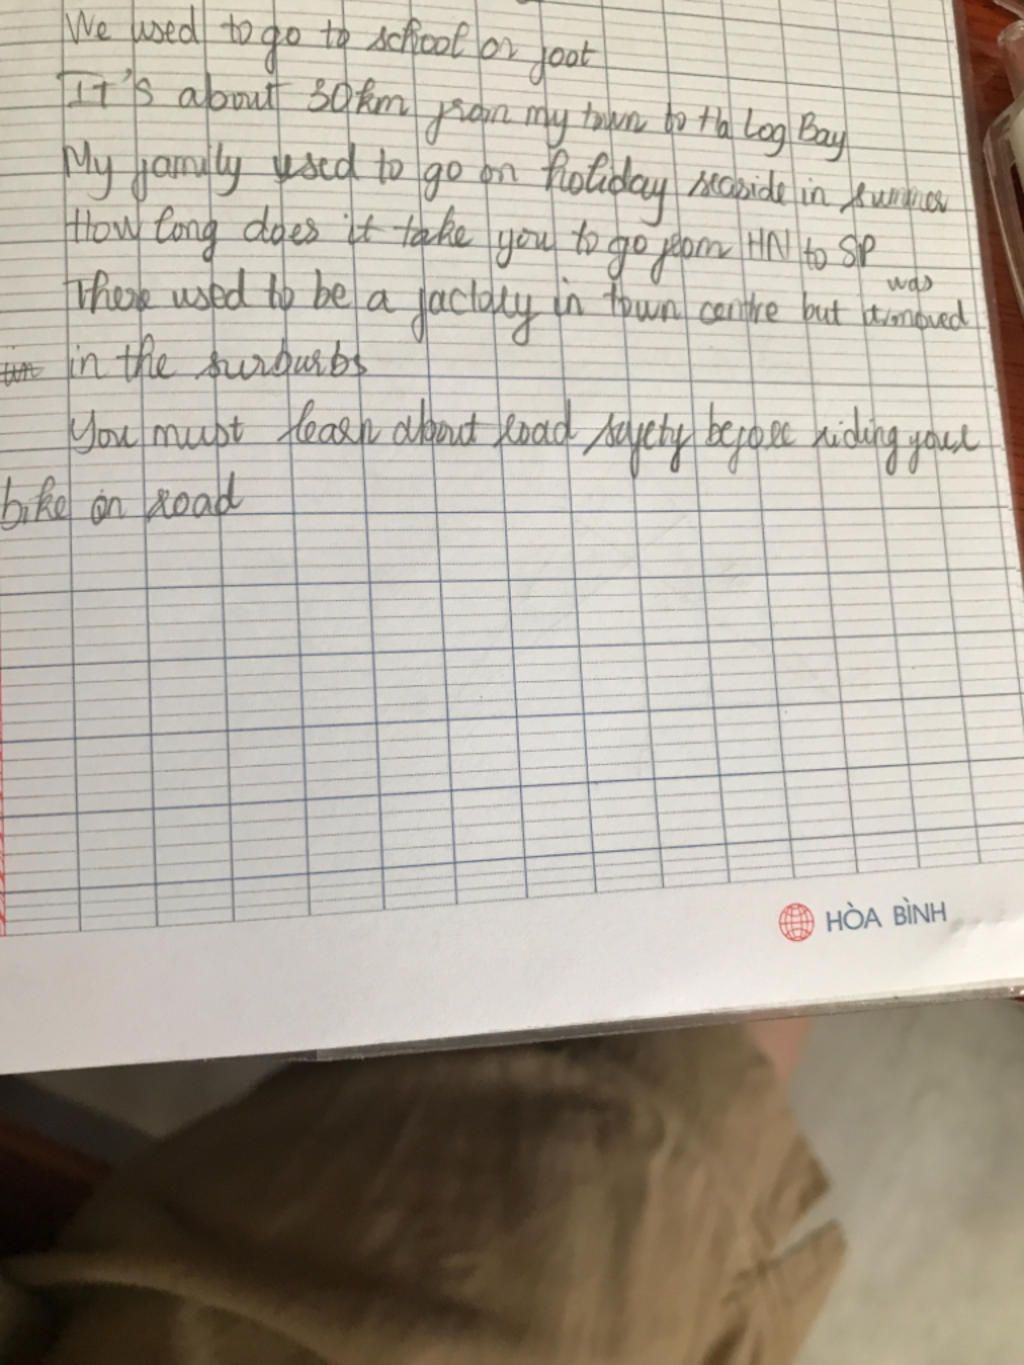 We used to go to school on foot
It's about 30km from my town to Ha Log Bay
My family used to go on holiday seaside in summer
How long does it take you to go from HN to SP
was
There used to be a factory in town centre but it moved
in the surburbs
You must learn about road safety before riding your
bike on road
HÒA BÌNH